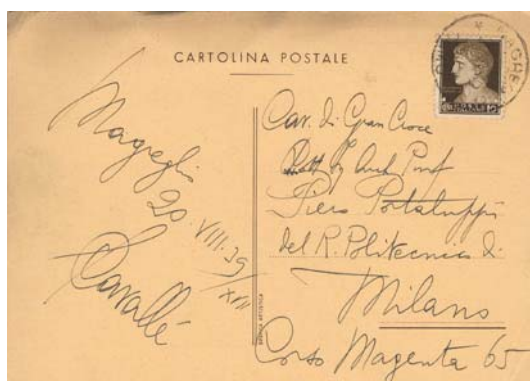 CARTOLINA POSTALE
Mazzeglio
20. VIII. 39/XVII
Cavallé
Cav. di Gran Croce
Dott Ing Arch Prof
Piero Portaluppi
del R. Politecnico di
Milano
Corso Magenta 65